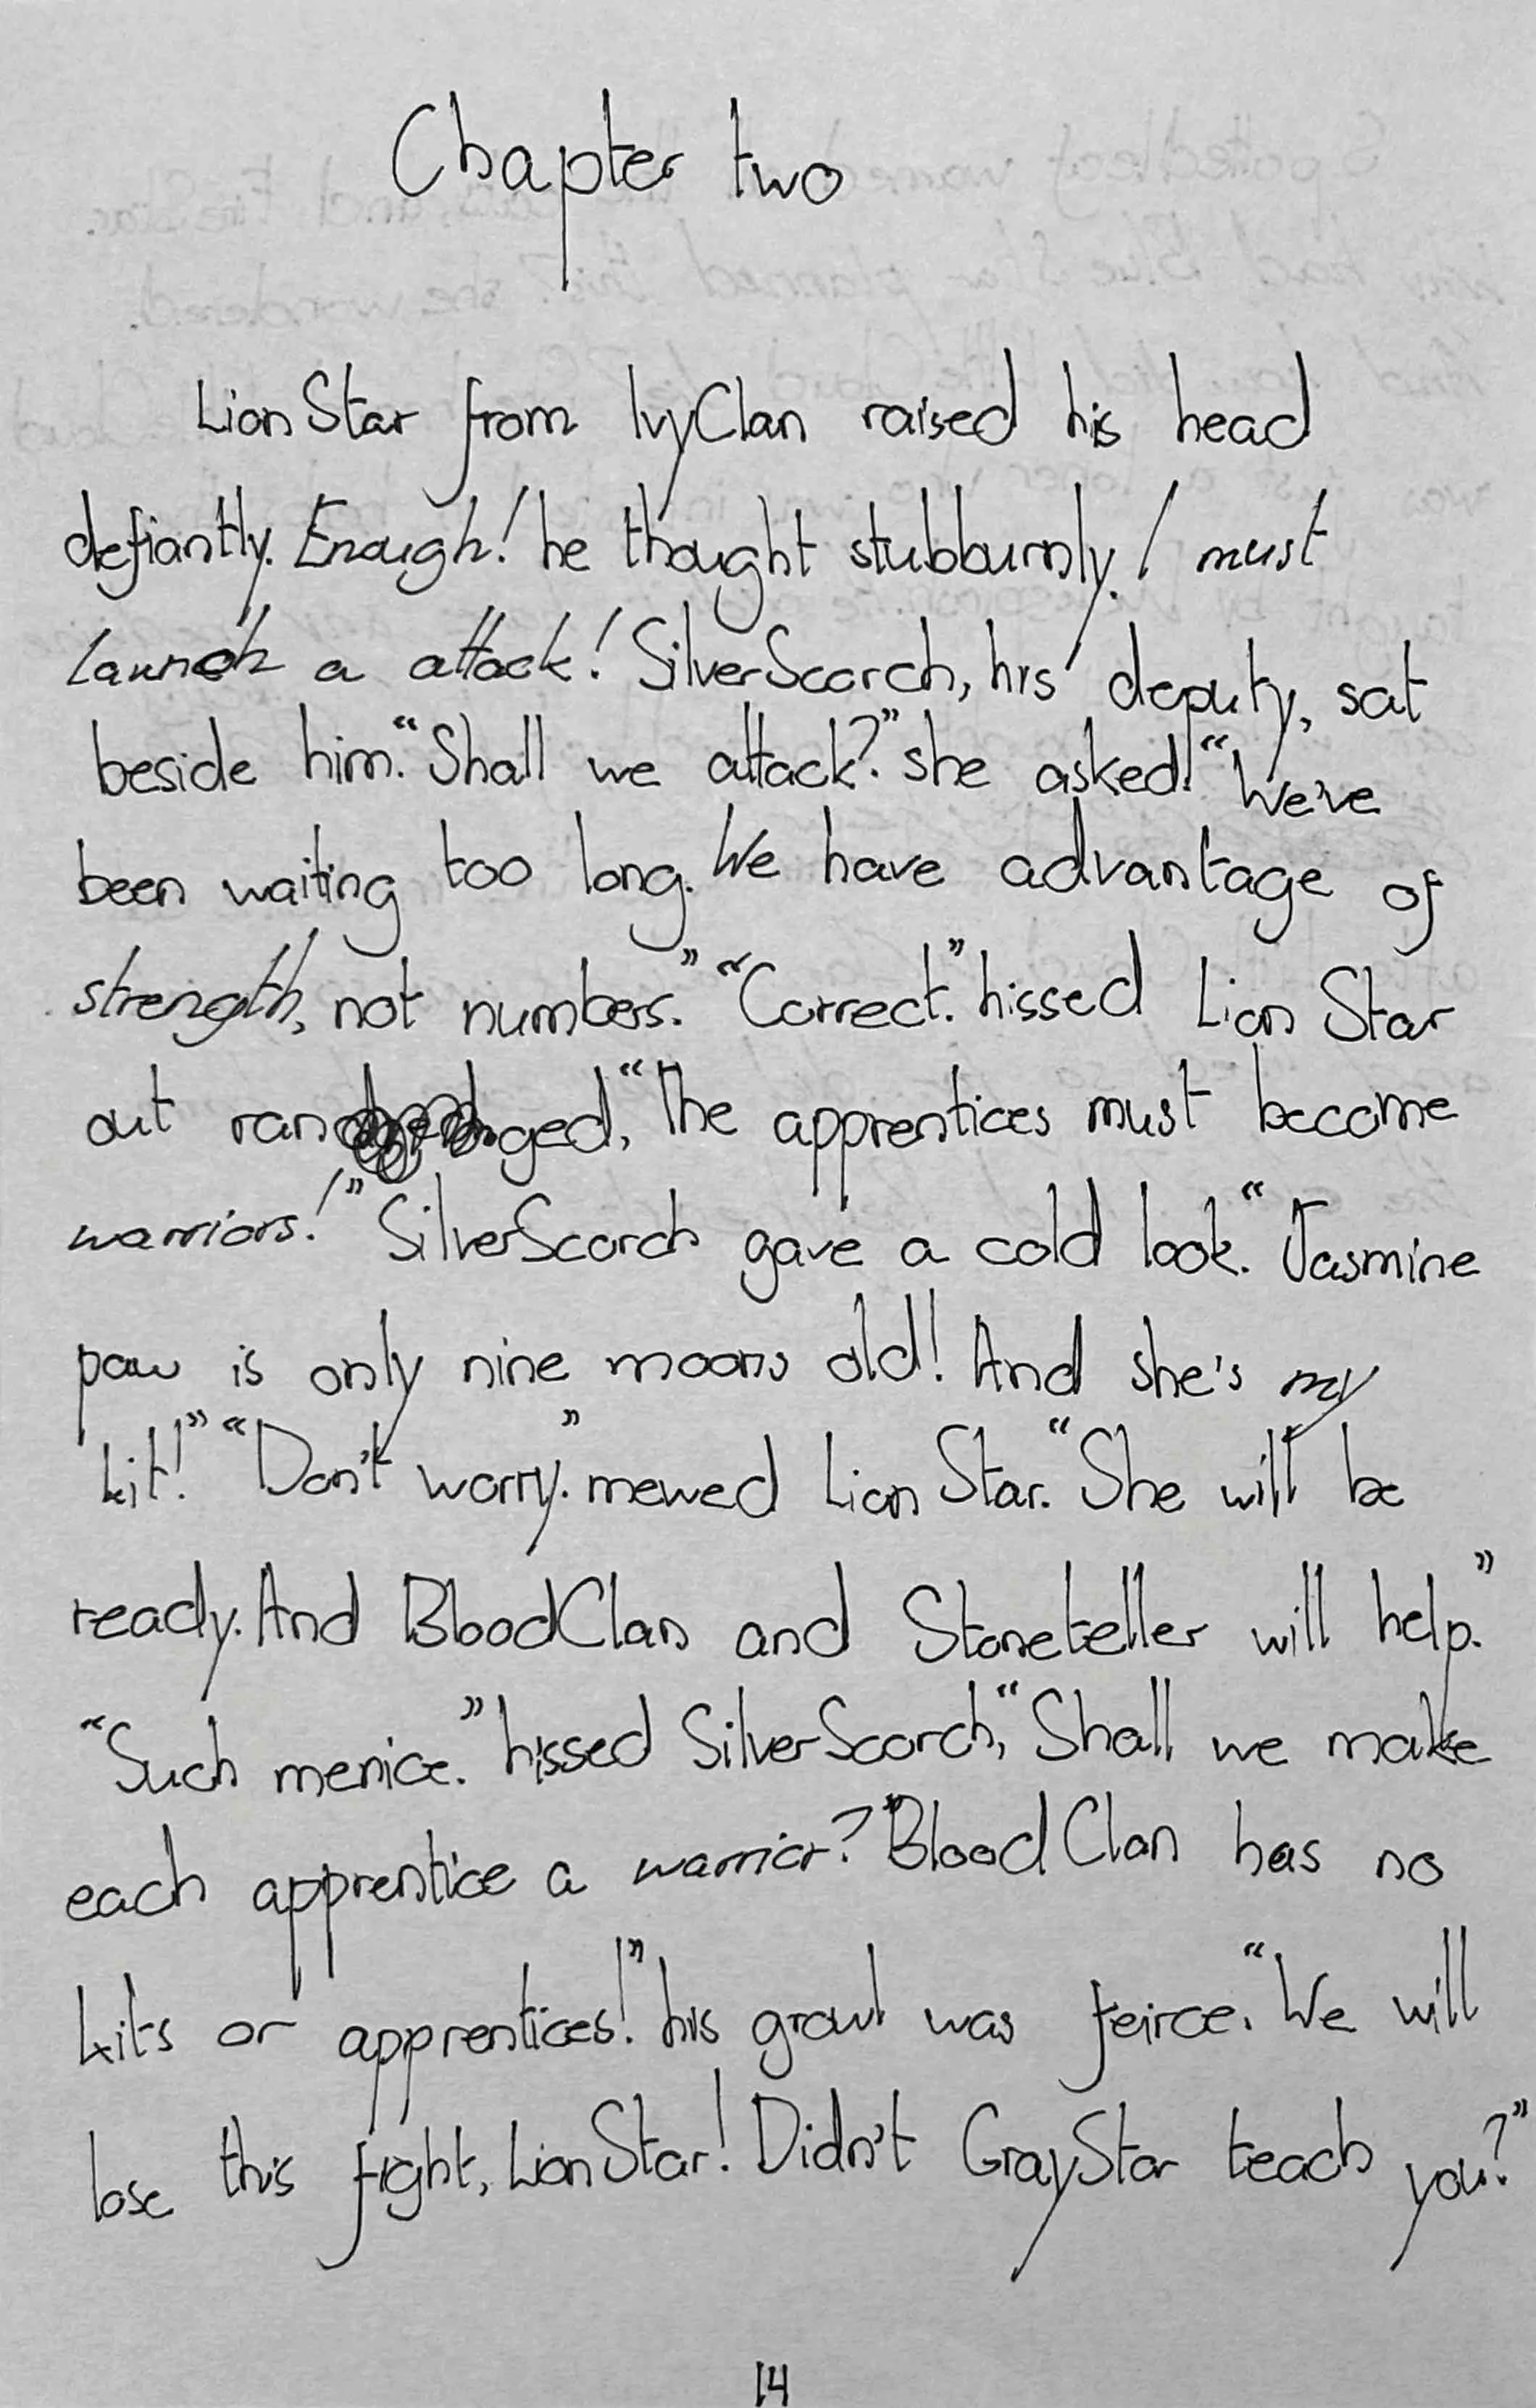 Chapter two
LionStar from IvyClan raised his head
defiantly. Enough! he thought stubburnly. I must
launch a attack! SilverScorch, his deputy, sat
beside him. “Shall we attack?” she asked. “We've
been waiting too long. We have advantage of
strength, not numbers.” “Correct.” hissed Lion Star
out ran ged, “The apprentices must become
warriors!” SilverScorch gave a cold look. “Jasmine
paw is only nine moons old! And she's my
kit!” “Don't worry.” mewed Lion Star. “She will be
ready. And BloodClan and Stoneteller will help.”
“Such menice.” hissed SilverScorch, “Shall we make
each apprentice a warrior? BloodClan has no
kits or apprentices!” his growl was feirce. “We will
lose this fight, LionStar! Didn't GrayStar teach you?”
14